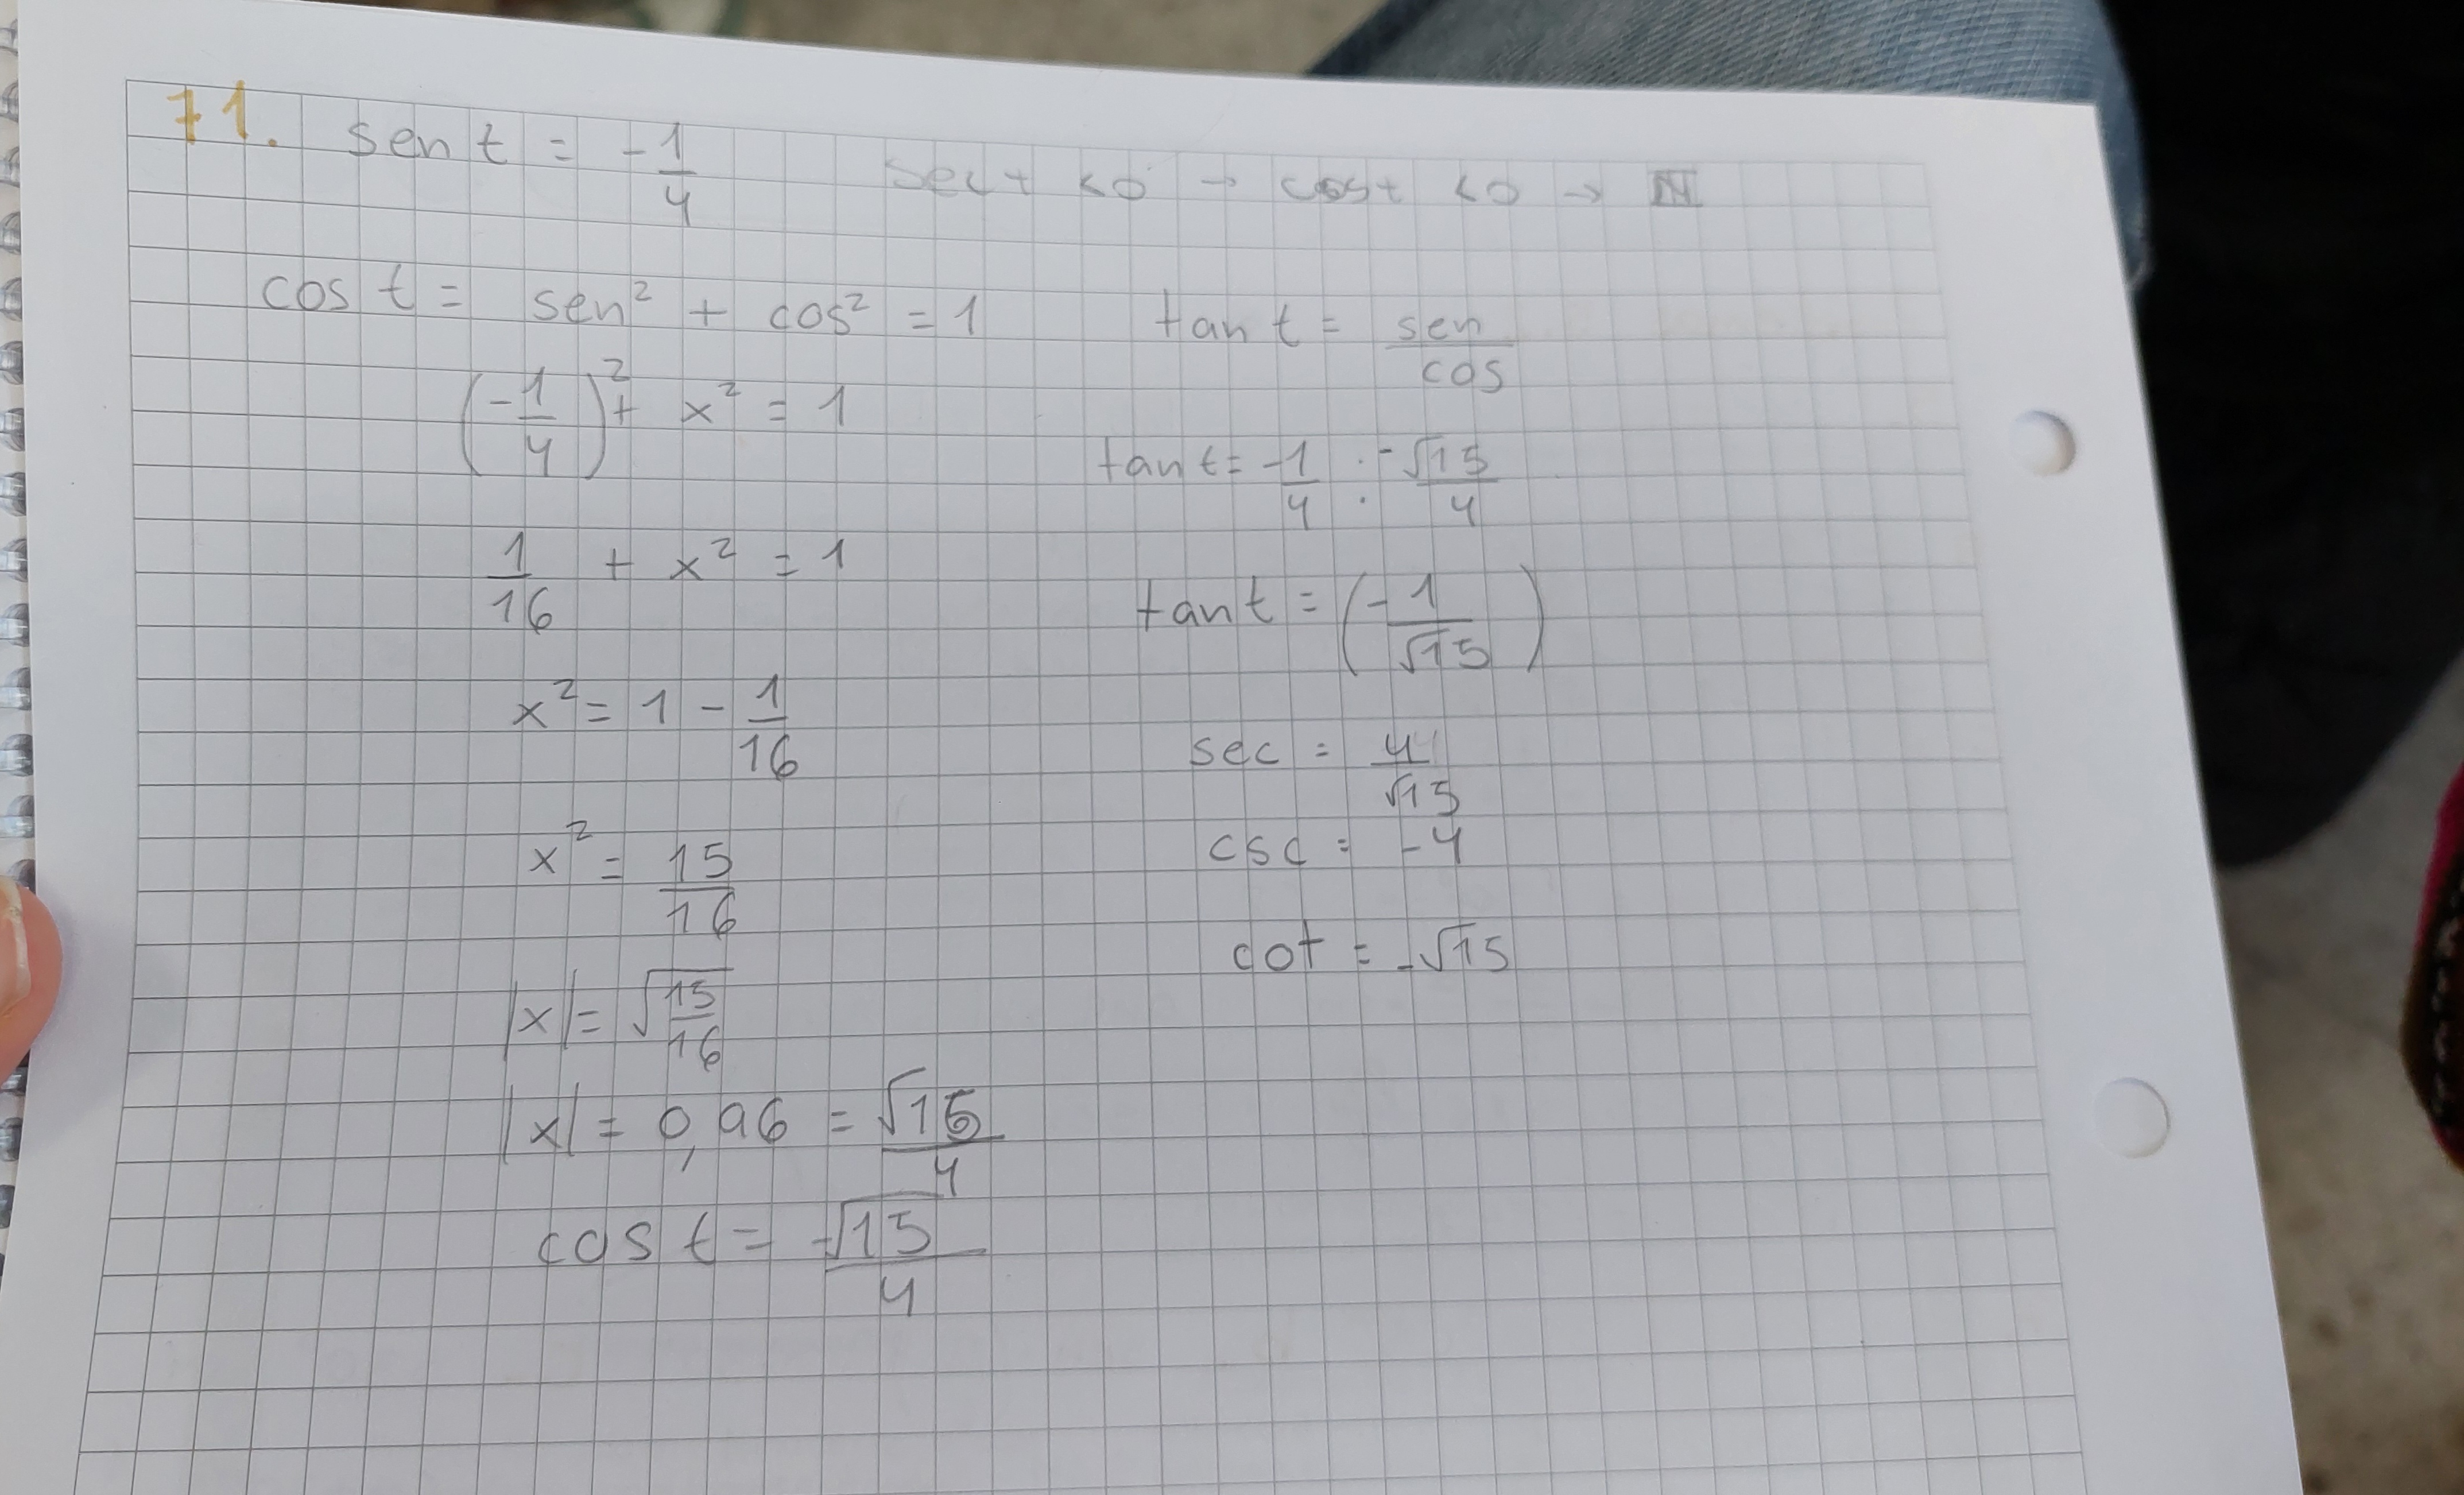 71. sen t = -1/4 sec t <0 → cos t <0 →
cos t = sen² + cos² = 1
(-1/4)² + x² = 1
1/16 + x² = 1
x² = 1 - 1/16
x² = 15/16
|x| = √15/16
|x| = 0,96 = √15/4
cos t = -√15/4
tan t = sen/cos
tan t = -1/4 : -√15/4
tan t = (-1/√15)
sec = 4/√15
csc = -4
cot = -√15